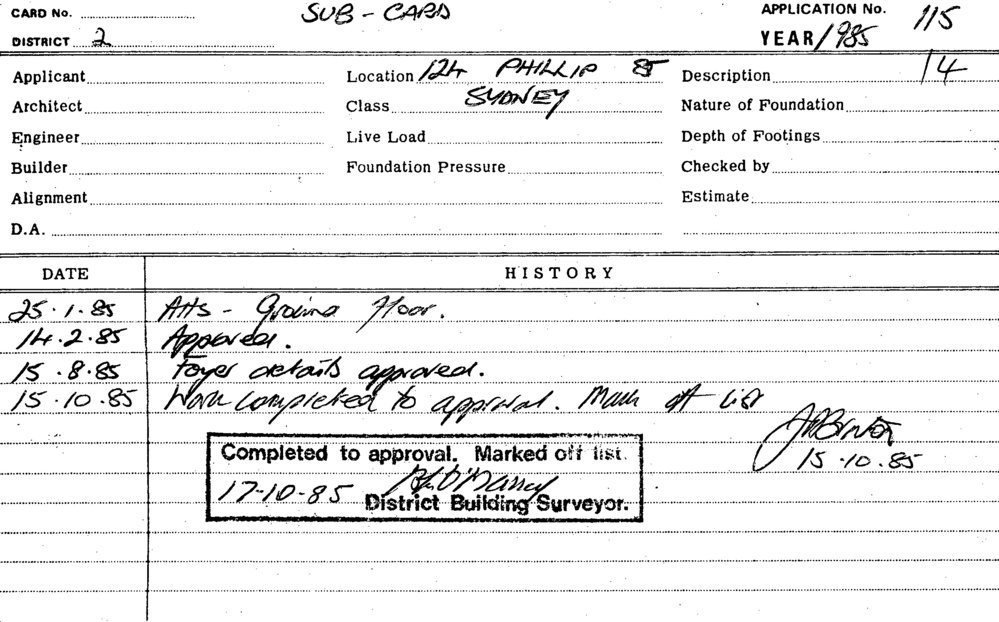 CARD No. SUB-CARD APPLICATION No. 115
DISTRICT 2 YEAR/1985
Applicant Location 124 PHILLIP ST Description 14
Architect Class SYDNEY Nature of Foundation
Engineer Live Load Depth of Footings
Builder Foundation Pressure Checked by
Alignment Estimate
D.A.
DATE HISTORY
25.1.85 Alts - Ground Floor.
14.2.85 Approved.
15.8.85 Foyer details approved.
15.10.85 Work completed to approval. Mark off List
15.10.85
Completed to approval. Marked off list.
17-10-85
District Building Surveyor.